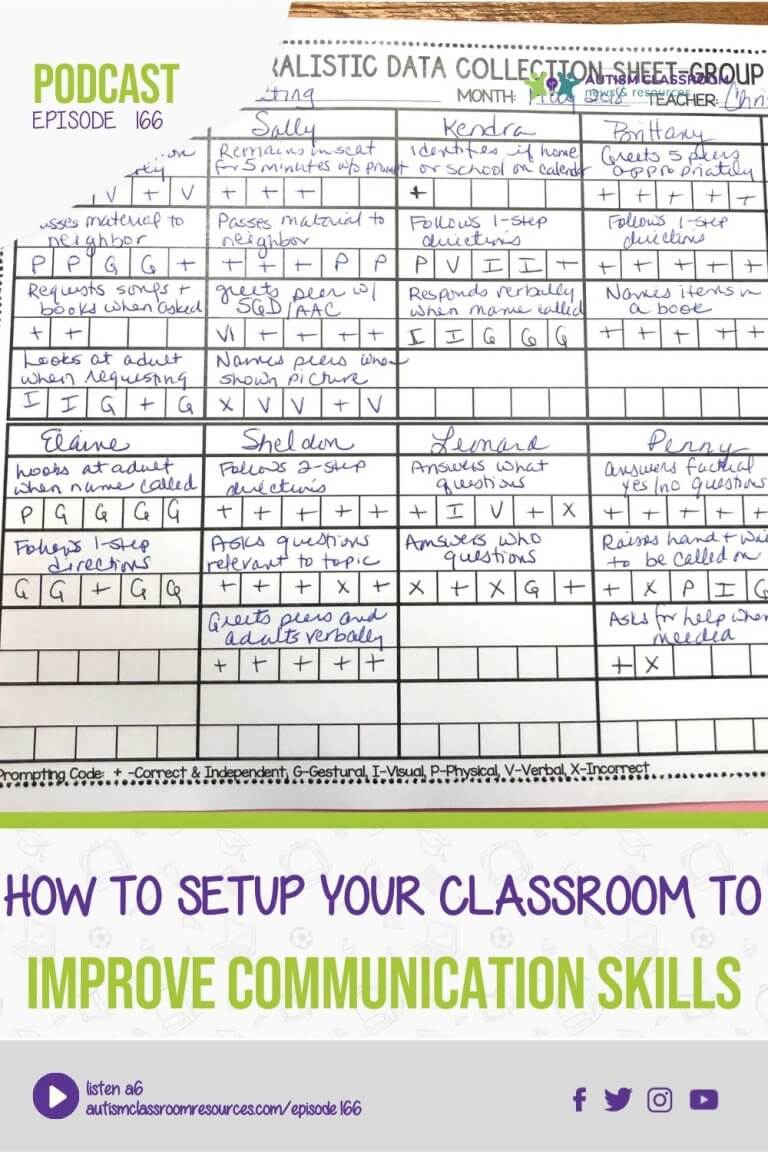 PODCAST
EPISODE 166
RALISTIC DATA COLLECTION SHEET-GROUP
AUTISM CLASSROOM
news & resources
MONTH: May 2018 TEACHER: Chris
Sally Kendra Brittany
Remains in seat
for 5 minutes w/o prompt
Identifies if home
or school on calendar
Greets 5 peers
appropriately
V + V
+ + +
+
+ + + + +
Passes material to
neighbor
Passes material to
neighbor
Follows 1-step
directions
Follows 1-step
directions
P P G G +
+ + + P P
P V I I +
+ + + + +
Requests songs +
books when asked
greets peer w/
SGD/AAC
Responds verbally
when name called
Names items in
a book
+ +
VI + + + +
I I G G G
+ + + + +
Looks at adult
when requesting
Names peers when
shown picture
I I G + G
X V V + V
Elaine Sheldon Leonard Penny
Looks at adult
when name called
Follows 2-step
directions
Answers what
questions
answers factual
yes/no questions
P G G G G
+ + + + +
+ I V + X
+ + + + +
Follows 1-step
directions
Asks questions
relevant to topic
Answers who
questions
Raises hand + wai
to be called on
G G + G G
+ + + X +
X + X G +
+ X P I G
Greets peers and
adults verbally
Asks for help when
needed
+ + + + +
+ X
Prompting Code: + -Correct & Independent, G-Gestural, I-Visual, P-Physical, V-Verbal, X-Incorrect
HOW TO SETUP YOUR CLASSROOM TO
IMPROVE COMMUNICATION SKILLS
listen a6
autismclassroomresources.com/episode166